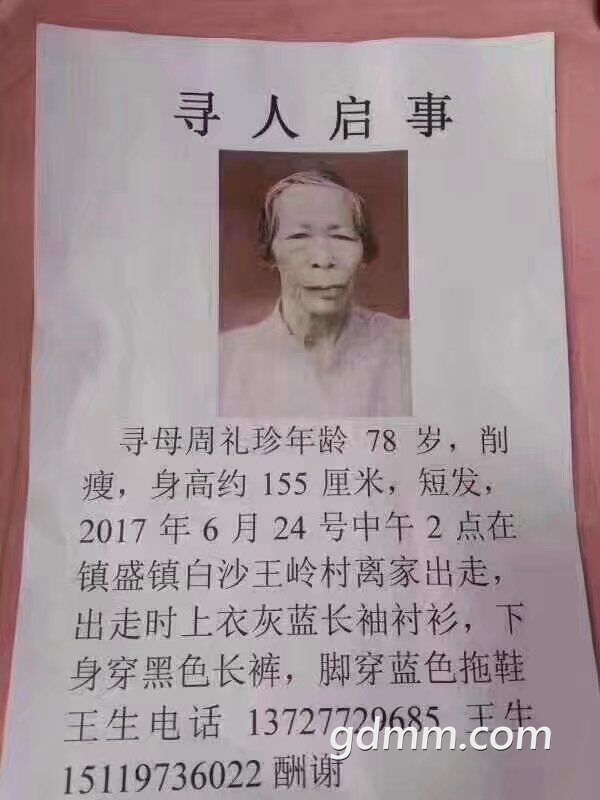 寻人启事
寻母周礼珍年龄 78 岁，削
瘦，身高约 155 厘米，短发，
2017 年 6 月 24 号中午 2 点在
镇盛镇白沙王岭村离家出走，
出走时上衣灰蓝长袖衬衫，下
身穿黑色长裤，脚穿蓝色拖鞋
王生电话 13727729685 王生
15119736022 酬谢
gdmm.com